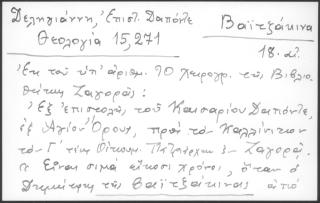 Δεληγιάννη, Ἐπιστ. Δαπόντε Βαϊτζάκινα
Θεολογία 15,271 18. αἰ.
Ἐκ τοῦ ὑπ' ἀριθμ. 70 Χειρογρ. τῆς Βιβλιο-
θήκης Ζαγορᾶς:
Ἐξ ἐπιστολῆς τοῦ Καισαρίου Δαπόντε,
ἐξ Ἁγίου Ὄρους, πρὸς τὸν Καλλίνικον
τὸν Γ΄ τέως Οἰκουμ. Πατριάρχην ἐν Ζαγορᾷ.
Εἶναι σιμά εἴκοσι χρόνοι, ὅταν ὁ
Δημήτρης τῆς Βαϊτζάκινας ἀπό